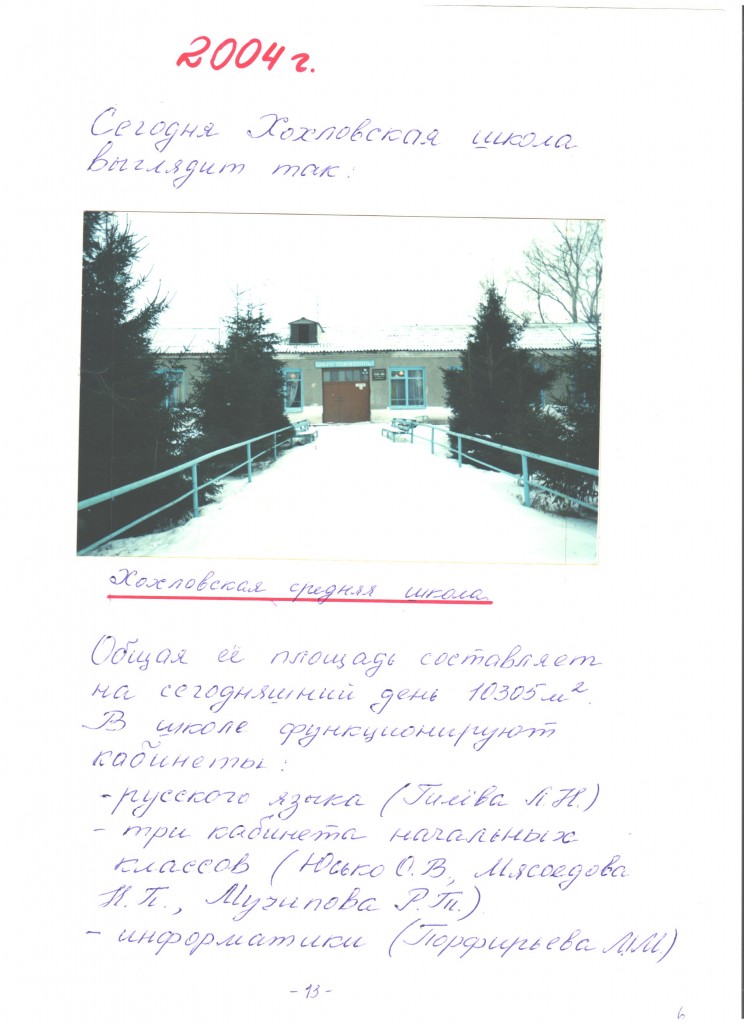 2004 г.
Сегодня Хохловская школа
выглядит так:
Хохловская средняя школа
Общая её площадь составляет
на сегодняшний день 10305 м².
В школе функционируют
кабинеты:
- русского языка (Гилёва Л.Н.)
- три кабинета начальных
классов (Юсько О.В., Мясоедова
Н.П., Мучипова Р.Т.)
- информатики (Порфирьева М.М)
- 13 -
6